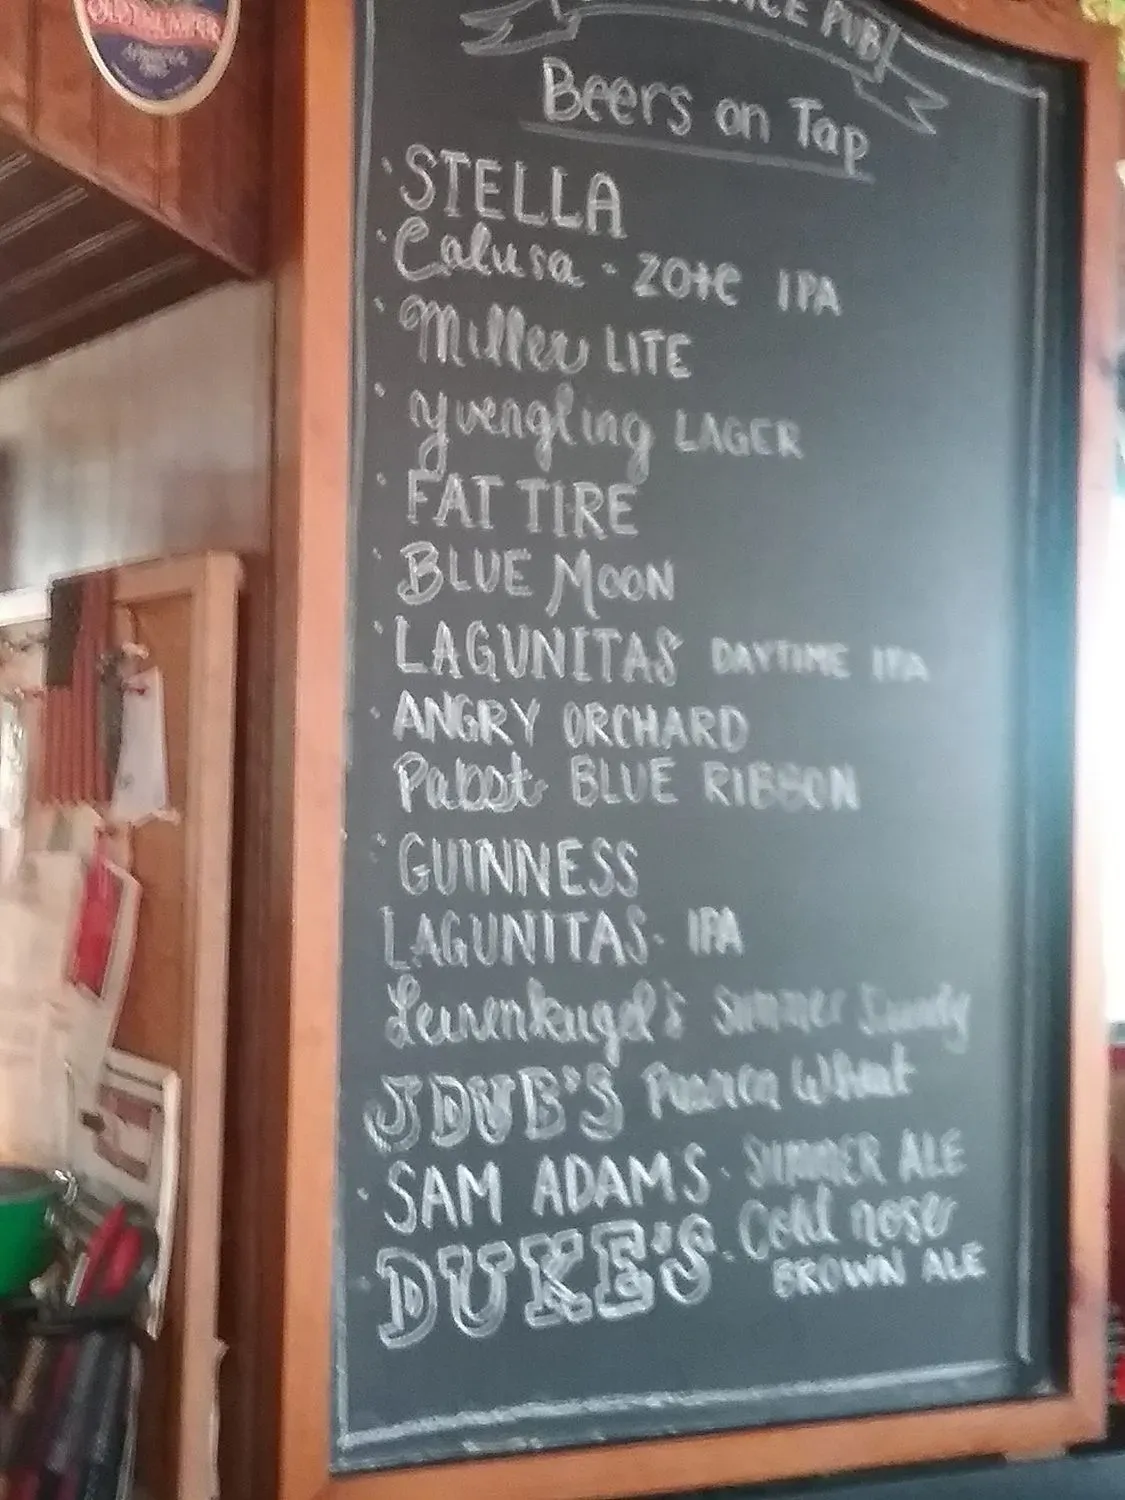 OLD THUMPER
PUB
Beers on Tap
· STELLA
· Calusa - ZOTE IPA
· Miller LITE
· Yuengling LAGER
· FAT TIRE
· BLUE MOON
· LAGUNITAS DAYTIME IPA
· ANGRY ORCHARD
Pabst BLUE RIBBON
· GUINNESS
LAGUNITAS - IPA
Leinenkugel's Summer Shandy
JDUB'S
· SAM ADAMS - SUMMER ALE
· DUKE'S - Cold nose
BROWN ALE